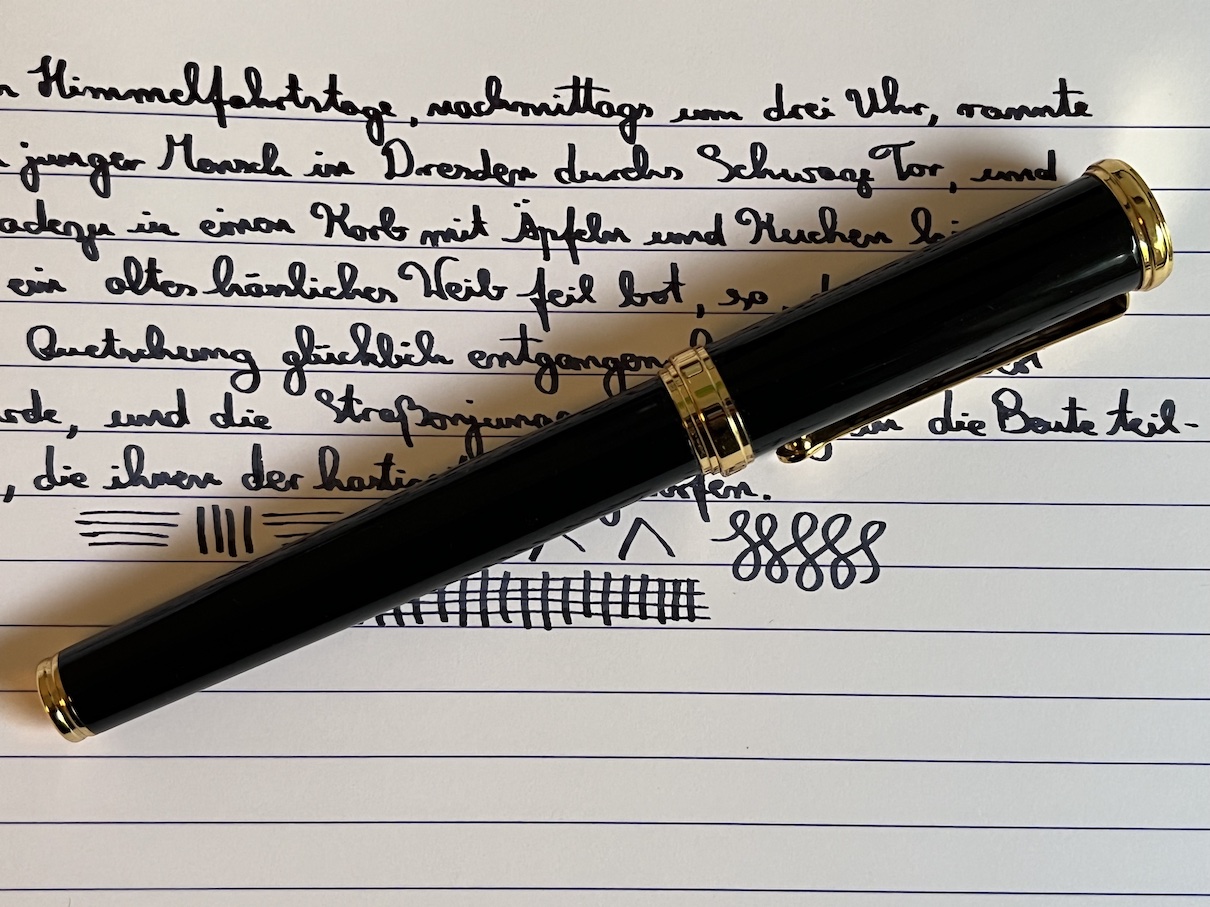 Himmelfahrtstage, nachmittags um drei Uhr, rannte
junger Mensch in Dresden durchs Schwarze Tor, und
in einen Korb mit Äpfeln und Kuchen
ein altes hässliches Weib feil bot, so
Quetschung glücklich entgangen
und die Straßenjung in die Beute teil-
, die ihnen der